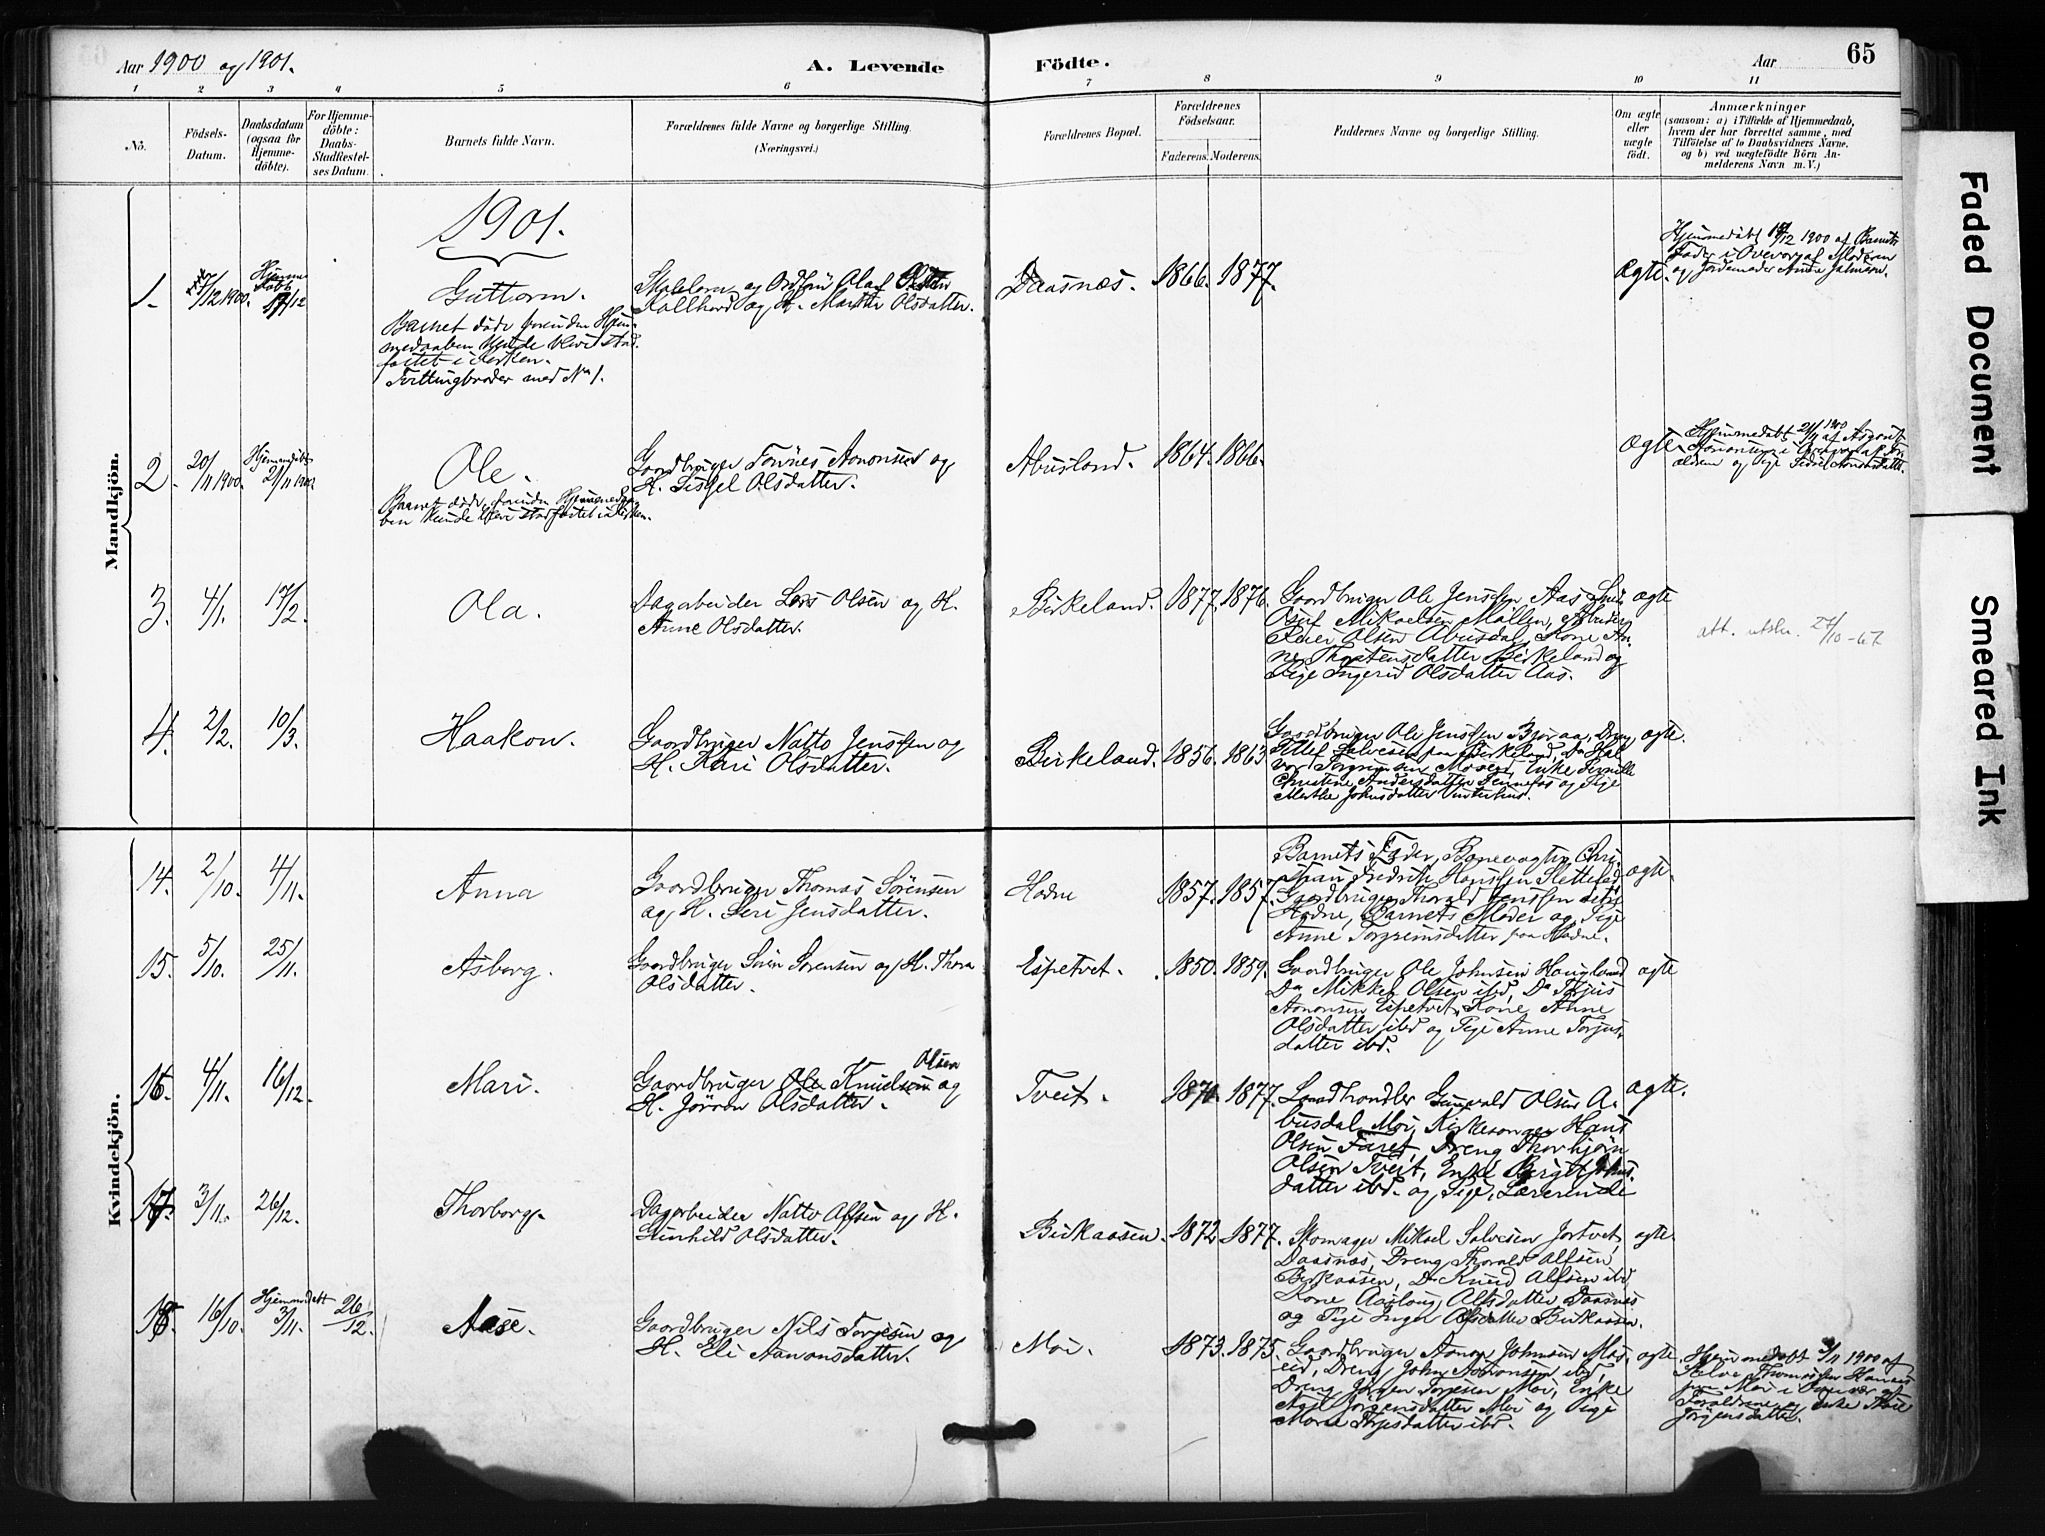 Aar 1900 og 1901.
A. Levende
Födte.
Aar
65
1 2 3 4 5 6 7 8 9 10 11
No.
Födsels-
Datum.
Daabsdatum
(ogsaa for
Hjemme-
döbte).
For Hjemme-
döbte:
Daabs-
Stadfæstel-
ses Datum.
Barnets fulde Navn.
Forældrenes fulde Navne og borgerlige Stilling.
(Næringsvei.)
Forældrenes Bopæl.
Forældrenes
Födselsaar.
Faderens. Moderens.
Faddernes Navne og borgerlige Stilling.
Om ægte
eller
uægte
födt.
Anmærkninger
(saasom: a) i Tilfælde af Hjemmedaab,
hvem der har forrettet samme, med
Tilföielse af to Daabsvidners Navne,
og b) ved uægtefödte Börn An-
melderens Navn m. V.)
Mandkjön.
1901.
1.
/12 1900.
Hjemme
döbt
17/12
Guttorm.
Barnet döde forinden Hjem-
medaaben kunde blive stad-
fæstet i Kirken.
Tvillingbroder med No 1.
og Ordfører Olaf Olsen
og H. Marthe Olsdatter.
Daasnes.
1866. 1877.
ægte.
Hjemmedöbt 17/12 1900 af Barnets
Fader i Overvær af Moderen
og Jordemoder Anne
2.
20/11 1900.
Hjemmedöbt
21/11 1900
Ole.
Barnet döde, forinden Hjemmedaa-
ben kunde blive stadfæstet i Kirken.
Gaardbruger Tönnes Aanonsen og
H. Sissel Olsdatter.
Abusland.
1864. 1866.
ægte
Hjemmedöbt 21/11 1900
af Asgout
i Overvær af For-
ældrene og Pige Aanonsdatter
3.
4/1.
17/2.
Ola.
Dagarbeider Lars Olsen og H.
Anne Olsdatter.
Birkeland.
1877. 1876.
Gaardbruger Ole Jenssen Aas,
Mikaelsen Mollen, Arbeider
Peder Olsen Abusdal, Kone An-
ne Thorstensdatter Birkeland og
Pige Ingerid Olsdatter Aas.
ægte
att. utstr. 27/10-67
4.
2/2.
10/3.
Haakon.
Gaardbruger Natto Jenssen og
H. Kari Olsdatter.
Birkeland.
1856. 1863
Gaardbruger Ole Jenssen Bjoraa, Dreng
Tellef Salvesen paa Birkeland, Do Hal-
vor Torgrimsen Moseid, Enke Pernille
Christine Andersdatter Fennefos og Pige
Marthe Johnsdatter Vinterhus.
ægte.
Kvindekjön.
14.
2/10.
4/11.
Anna
Gaardbruger Thomas Sörensen
og H. Seri Jensdatter.
Hodne
1857. 1857.
Barnets Fader, Banevogter Chri-
stian Fredrik Hanssen Slettelid,
Gaardbruger Thorald Jenssen
Hodne, Barnets Moder og Pige
Anne Torgrimsdatter paa Hodne.
ægte.
15.
5/10.
25/11.
Asborg.
Gaardbruger Sören Sörensen og H. Thora
Olsdatter.
Espetvet.
1850. 1859.
Gaardbruger Ole Johnsen Haugland
Do Mikkel Olsen ibd, Do Terjus
Aanonsen Espetvet, Kone Anne
Olsdatter ibd og Pige Anne Torjus-
datter ibd.
ægte
16.
4/11.
16/12.
Mari.
Olsen
Gaardbruger Ole Knudsen og
H. Jörann Olsdatter.
Tveit.
1871 1877.
Landhandler Gunvald Olsen A-
busdal, Moi, Kirkesanger Hans
Olsen Faret, Dreng Thorbjörn
Olsen Tveit, Enke Birgit Johns-
datter ibd. og Pige, Lærerinde
ægte.
17.
3/11.
26/12.
Thorborg.
Dagarbeider Natto Alfsen og H.
Gunhild Olsdatter.
Birkaasen.
1872 1877.
Skomager Mikael Salvesen Jortvet,
Daasnes, Dreng Thorald Alfsen
Birkaasen, Do Knud Alfsen ibd,
Kone Aaslaug Alfsdatter Daasnes
og Pige Inger Alfsdatter Birkaasen.
ægte.
18.
16/10.
Hjemmedöbt
3/11.
26/12.
Aase.
Gaardbruger Nils Torjesen og
H. Eli Aanonsdatter.
Moi.
1873. 1875.
Gaardbruger Aanon Johnsen Mos-
eid, Dreng John Aanonsen ibd,
Dreng Jörgen Torjesen Moi, Enke
Aase Jörgensdatter Moi og Pige
Maren Torjesdatter ibd.
ægte.
Hjemmedöbt 3/11 1900 af
Thomassen
paa Moi i Overvær af
Forældrene og Enke Aase
Jörgensdatter.
Faded Document
Smeared Ink